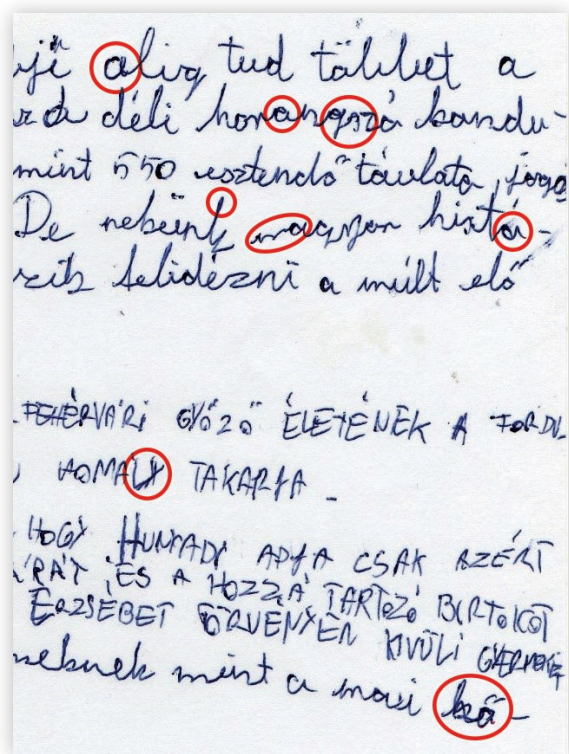 alig tud többet a
déli harangszó kondu-
mint 550 esztendő távlata, joga
De nekünk magyar histó-
felidézni a múlt elő
FEHÉRVÁRI GYŐZŐ ÉLETÉNEK A FORDU
HOMÁLY TAKARJA
HOGY HUNYADY APJA CSAK AZÉRT
ÉS A HOZZÁ TARTOZÓ BIRTOKOT
ERZSÉBET TÖRVÉNYEN KIVÜLI GYERMEKE
mint a mai kö-